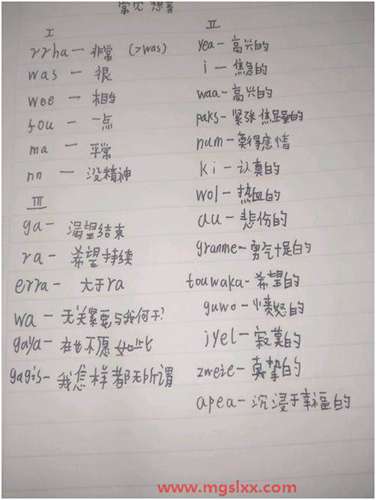 常见想音
I
rrha — 非常 (>was)
was — 很
wee — 相当
fou — 一点
ma — 平常
nn — 没精神
III
ga — 渴望结束
ra — 希望持续
erra — 大于ra
wa — 无关累要与我何干?
gaya — 再也不愿如此
gagis — 我怎样都无所谓
II
yea — 高兴的
i — 焦急的
waa — 高兴的
paks — 紧张焦虑的
num — 莫得感情
ki — 认真的
wol — 热血的
au — 悲伤的
granme — 勇气十足的
touwaka — 希望的
guwo — 愤怒的
jyel — 寂寞的
zweie — 真挚的
apea — 沉浸于幸福的
www.mgslxx.com